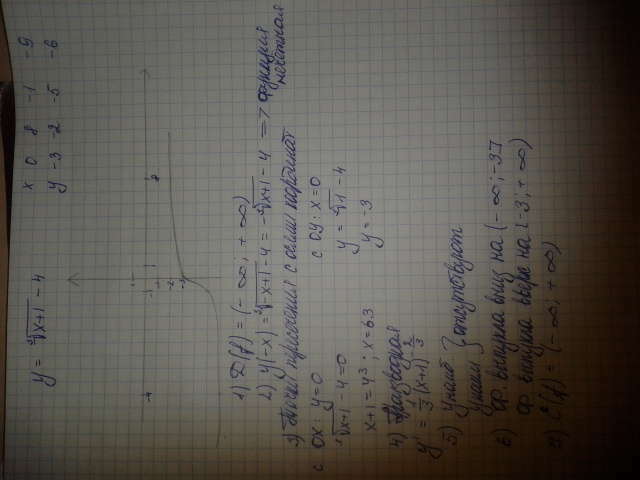 y = ³√x+1 - 4
x 0 8 -1 -9
y -3 -2 -5 -6
8
-1
-2
-3
-4
1) D(f) = (-∞; +∞)
2) y(-x) = ³√-x+1 - 4 = -³√x+1 - 4 => функция нечётная
3) Точки пересечения с осями координат
с OX: y=0
³√x+1 - 4 = 0
x+1 = 4³; x = 63
с OY: x=0
y = ³√1 - 4
y = -3
4) Производная
y' = 1/3 (x+1)^-2/3
5) yнаиб
yнаим } отсутствуют
6) ф выпукла вниз на (-∞; -3]
ф выпукла вверх на [-3; +∞)
7) E(f) = (-∞; +∞)